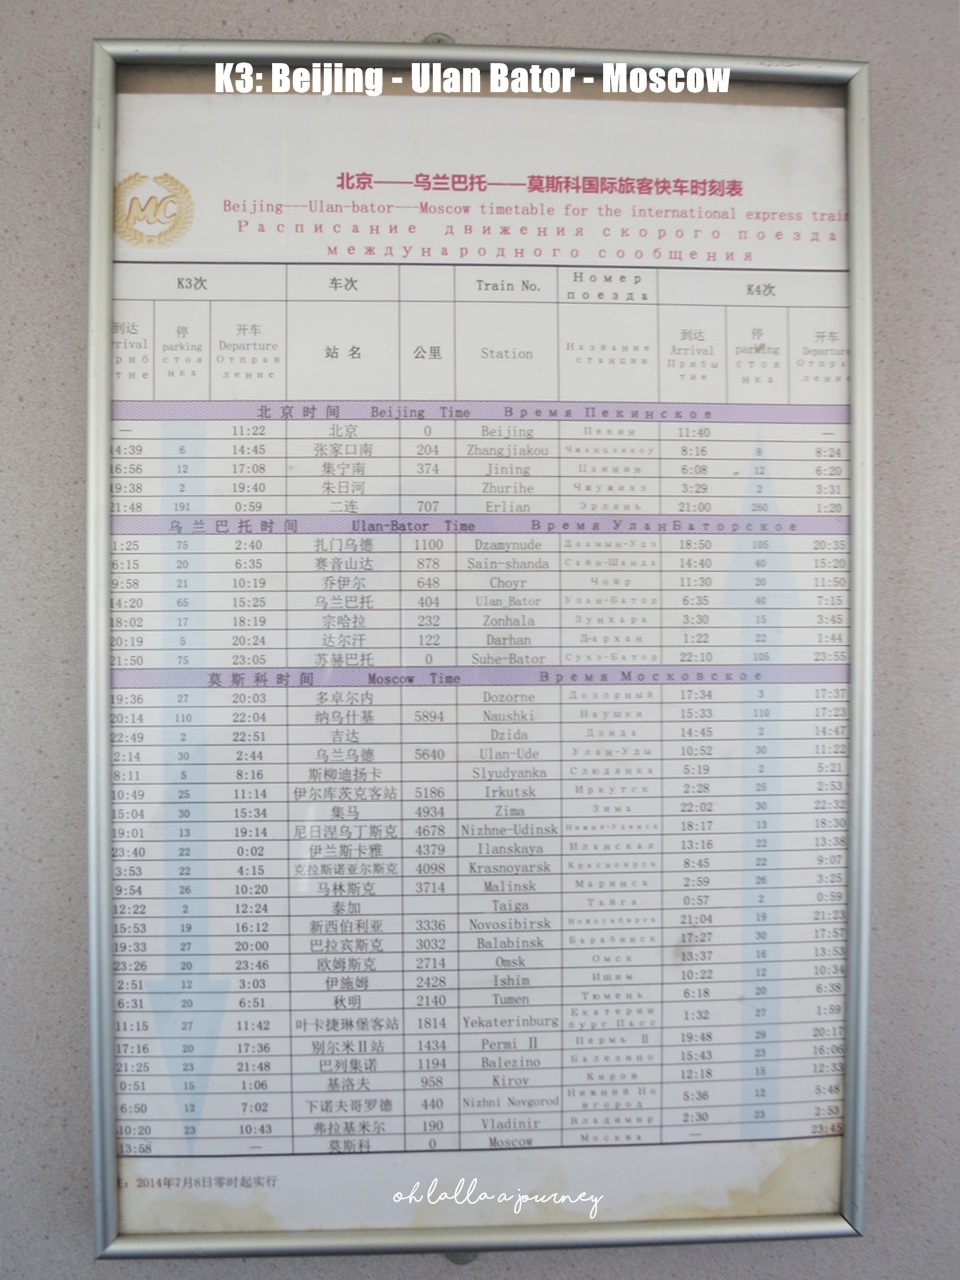 K3: Beijing - Ulan Bator - Moscow
北京——乌兰巴托——莫斯科国际旅客快车时刻表
MC
Beijing---Ulan-bator---Moscow timetable for the international express train
Расписание движения скорого поезда
международного сообщения
K3次 车次 Train No. Номер поезда K4次
到达 rrival 停 parking стоянка 开车 Departure Отправление 站名 公里 Station Название станции 到达 Arrival Прибытие 停 parking стоянка 开车 Departure
北京时间 Beijing Time Время Пекинское
— 11:22 北京 0 Beijing Пекин 11:40 —
14:39 6 14:45 张家口南 204 Zhangjiakou 8:16 8 8:24
16:56 12 17:08 集宁南 374 Jining Цзинин 6:08 12 6:20
19:38 2 19:40 朱日河 Zhurihe Чжужихэ 3:29 2 3:31
21:48 191 0:59 二连 707 Erlian Эрлянь 21:00 260 1:20
乌兰巴托时间 Ulan-Bator Time Время УланБаторское
1:25 75 2:40 扎门乌德 1100 Dzamynude 18:50 105 20:35
6:15 20 6:35 赛音山达 878 Sain-shanda Сайн-Шанда 14:40 40 15:20
9:58 21 10:19 乔伊尔 648 Choyr Чойр 11:30 20 11:50
14:20 65 15:25 乌兰巴托 404 Ulan Bator Улан-Батор 6:35 40 7:15
18:02 17 18:19 宗哈拉 232 Zonhala Зунхара 3:30 15 3:45
20:19 5 20:24 达尔汗 122 Darhan Дархан 1:22 22 1:44
21:50 75 23:05 苏赫巴托 0 Suhe-Bator Сухэ-Батор 22:10 105 23:55
莫斯科时间 Moscow Time Время Московское
19:36 27 20:03 多卓尔内 Dozorne Дозорный 17:34 3 17:37
20:14 110 22:04 纳乌什基 5894 Naushki Наушки 15:33 110 17:23
22:49 2 22:51 吉达 Dzida Дзида 14:45 2 14:47
2:14 30 2:44 乌兰乌德 5640 Ulan-Ude Улан-Уды 10:52 30 11:22
8:11 5 8:16 斯柳迪扬卡 Slyudyanka Слюдянка 5:19 2 5:21
10:49 25 11:14 伊尔库茨克客站 5186 Irkutsk Иркутск 2:28 25 2:53
15:04 30 15:34 集马 4934 Zima Зима 22:02 30 22:32
19:01 13 19:14 尼日涅乌丁斯克 4678 Nizhne-Udinsk 18:17 13 18:30
23:40 22 0:02 伊兰斯卡雅 4379 Ilanskaya Иланская 13:16 22 13:38
3:53 22 4:15 克拉斯诺亚尔斯克 4098 Krasnoyarsk Красноярск 8:45 22 9:07
9:54 26 10:20 马林斯克 3714 Malinsk Маринск 2:59 26 3:25
12:22 2 12:24 泰加 Taiga Тайга 0:57 2 0:59
15:53 19 16:12 新西伯利亚 3336 Novosibirsk Новосибирск 21:04 19 21:23
19:33 27 20:00 巴拉宾斯克 3032 Balabinsk Барабинск 17:27 30 17:57
23:26 20 23:46 欧姆斯克 2714 Omsk Омск 13:37 16 13:53
2:51 12 3:03 伊施姆 2428 Ishim Ишим 10:22 12 10:34
6:31 20 6:51 秋明 2140 Tumen Тюмень 6:18 20 6:38
11:15 27 11:42 叶卡捷琳堡客站 1814 Yekaterinburg Екатеринбург Пасс 1:32 27 1:59
17:16 20 17:36 别尔米II站 1434 Permi II Пермь II 19:48 29 20:17
21:25 23 21:48 巴列集诺 1194 Balezino Балезино 15:43 23 16:06
0:51 15 1:06 基洛夫 958 Kirov Киров 12:18 15 12:33
6:50 12 7:02 下诺夫哥罗德 440 Nizhni Novgorod Нижний Новгород 5:36 12 5:48
10:20 23 10:43 弗拉基米尔 190 Vladinir Владимир 2:30 23 2:53
13:58 — 莫斯科 0 Moscow Москва — 23:45
: 2014年7月8日零时起实行
oh lalla a journey